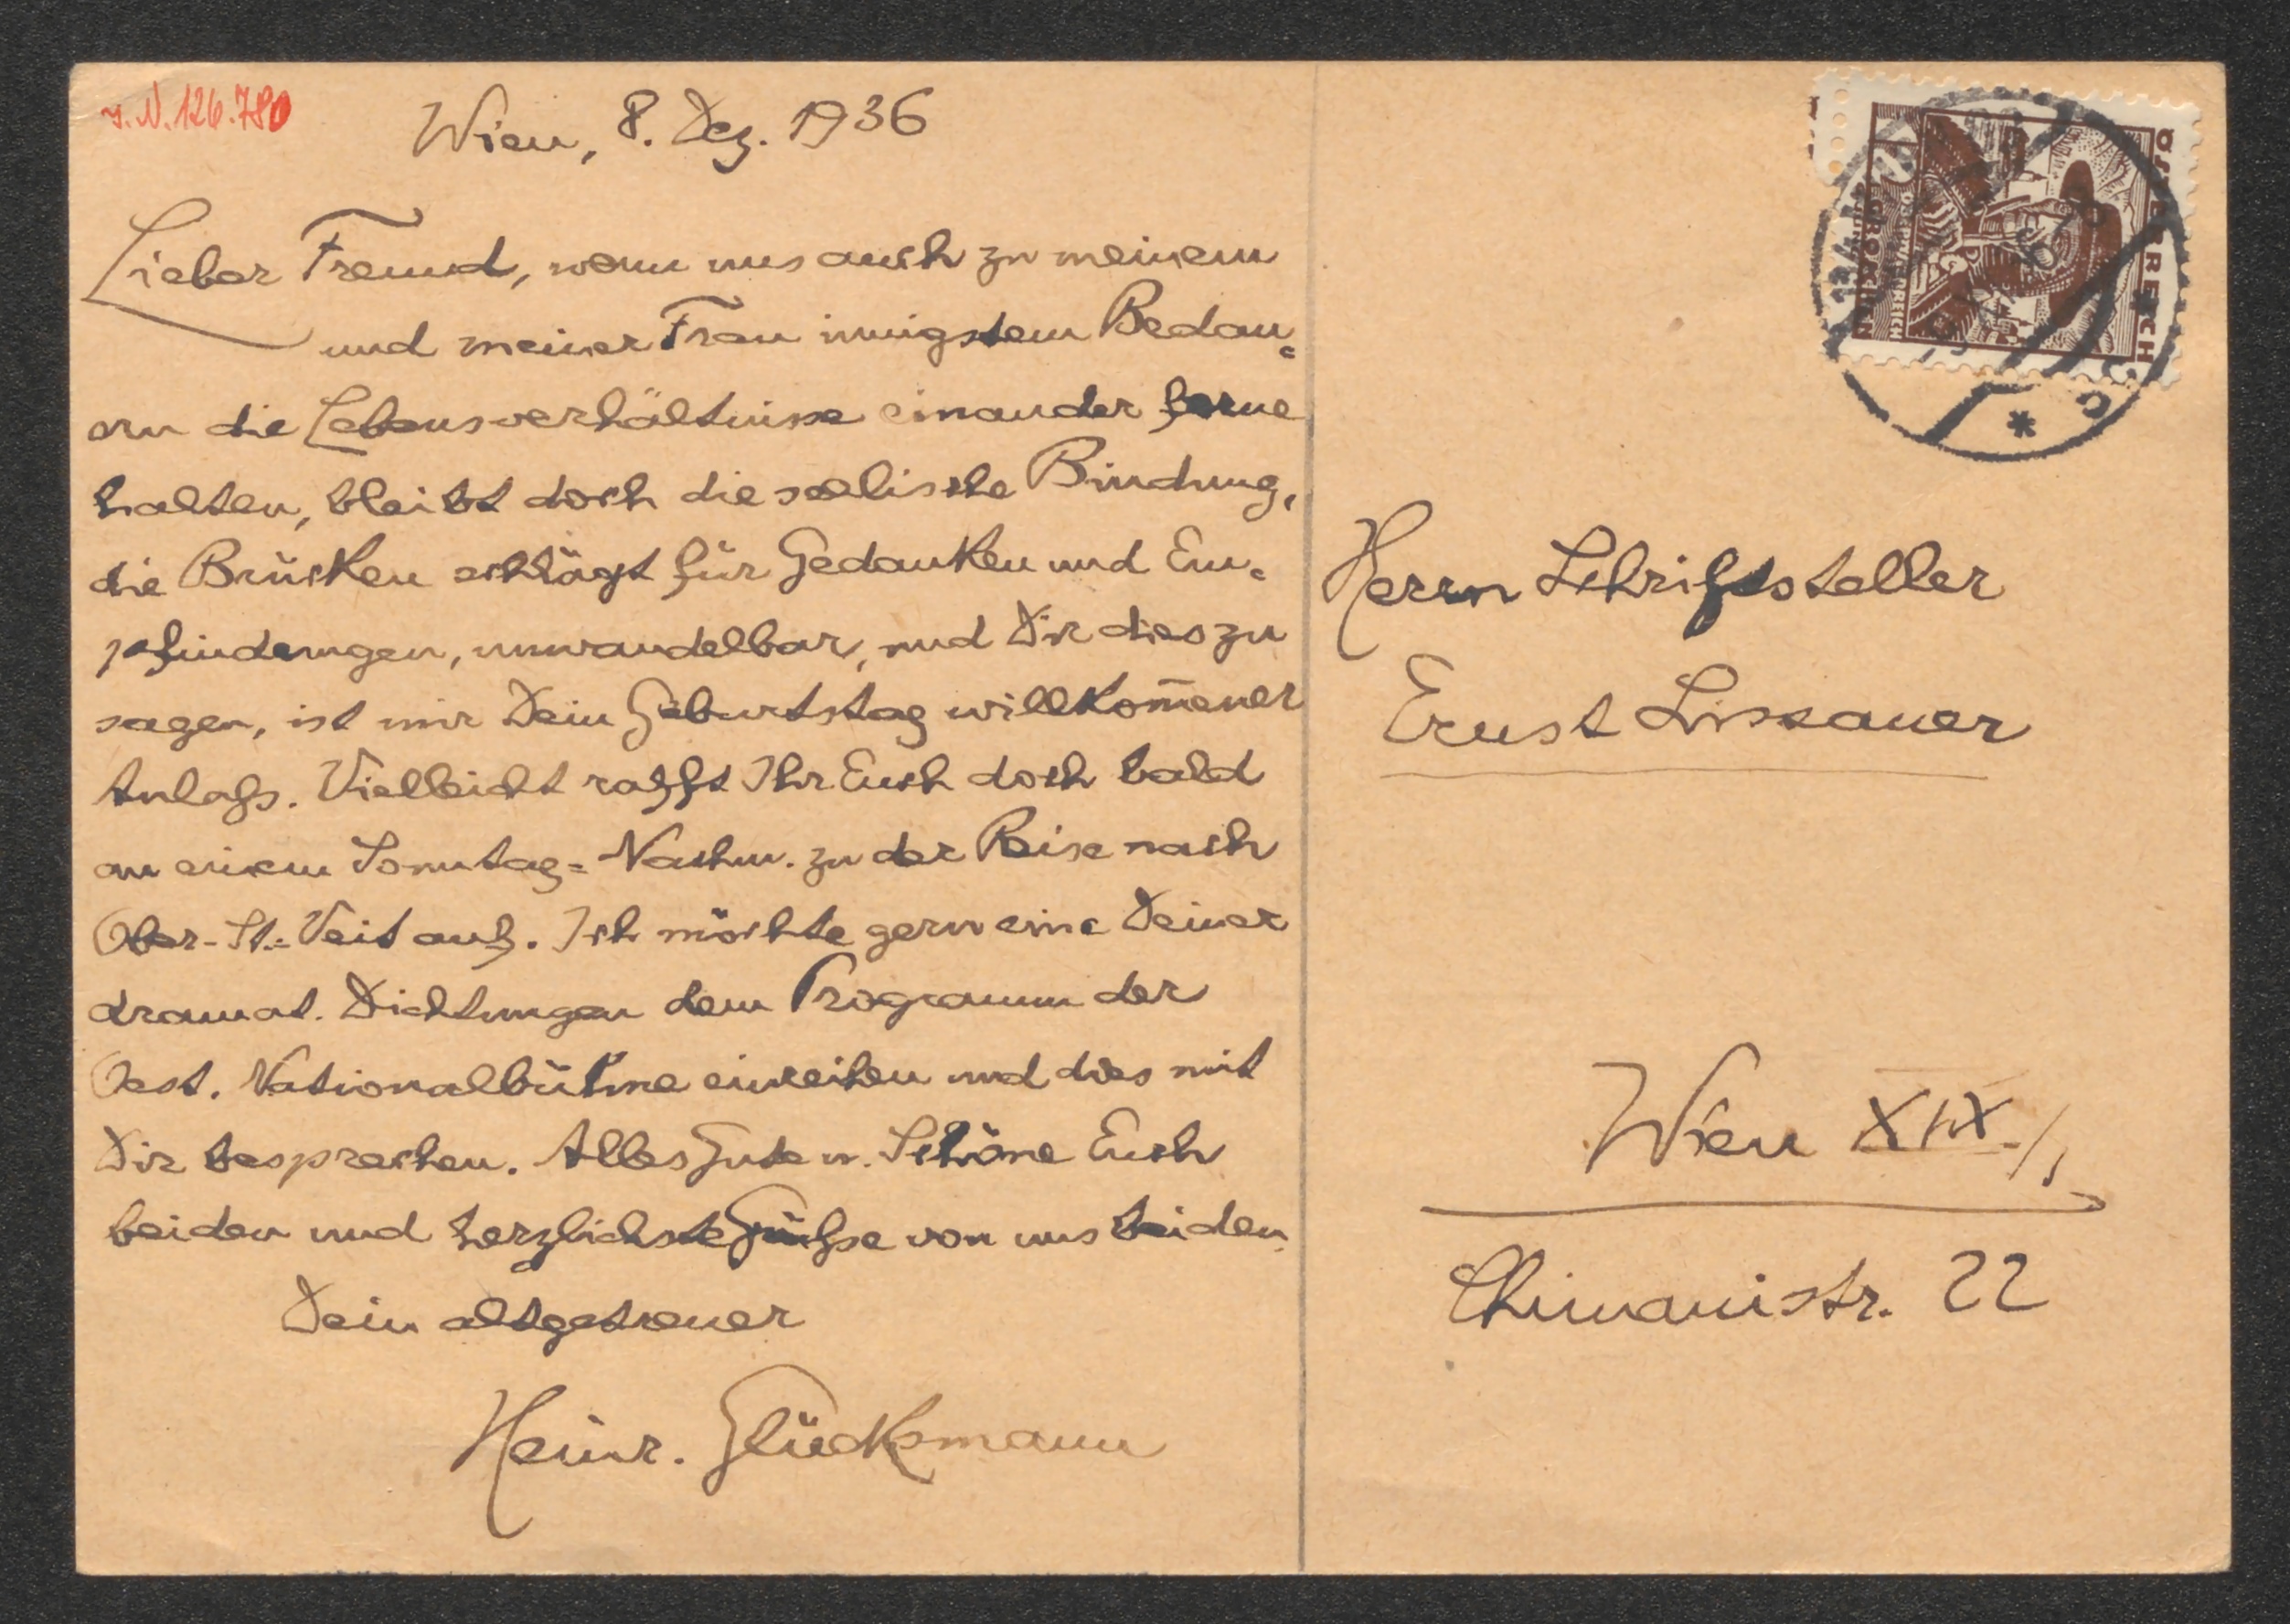 J.N. 126.780
Wien, 8. Dez. 1936
Lieber Freund, wenn uns auch zu meinem
und meiner Frau innigstem Bedau-
ern die Lebensverhältnisse einander ferne
halten, bleibt doch die seelische Bindung,
die Brücken schlägt für Gedanken und Em-
pfindungen, unwandelbar, und Dir dies zu
sagen, ist mir Dein Geburtstag willkom̄ener
Anlaſs. Vielleicht rafft Ihr Euch doch bald
an einem Sonntag-Nachm. zu der Reise nach
Ober-St.-Veit auf. Ich möchte gern eine Deiner
dramat. Dichtungen dem Programm der
Oest. Nationalbühne einreihen und dies mit
Dir besprechen. Alles Gute u. Schöne Euch
beiden und herzlichste Grüſse von uns beiden.
Dein altgetreuer
Heinr. Glücksmann
ÖSTERREICH
GROSCHEN
Herrn Schriftsteller
Ernst Lissauer
Wien XIX./1
Chimanistr. 22